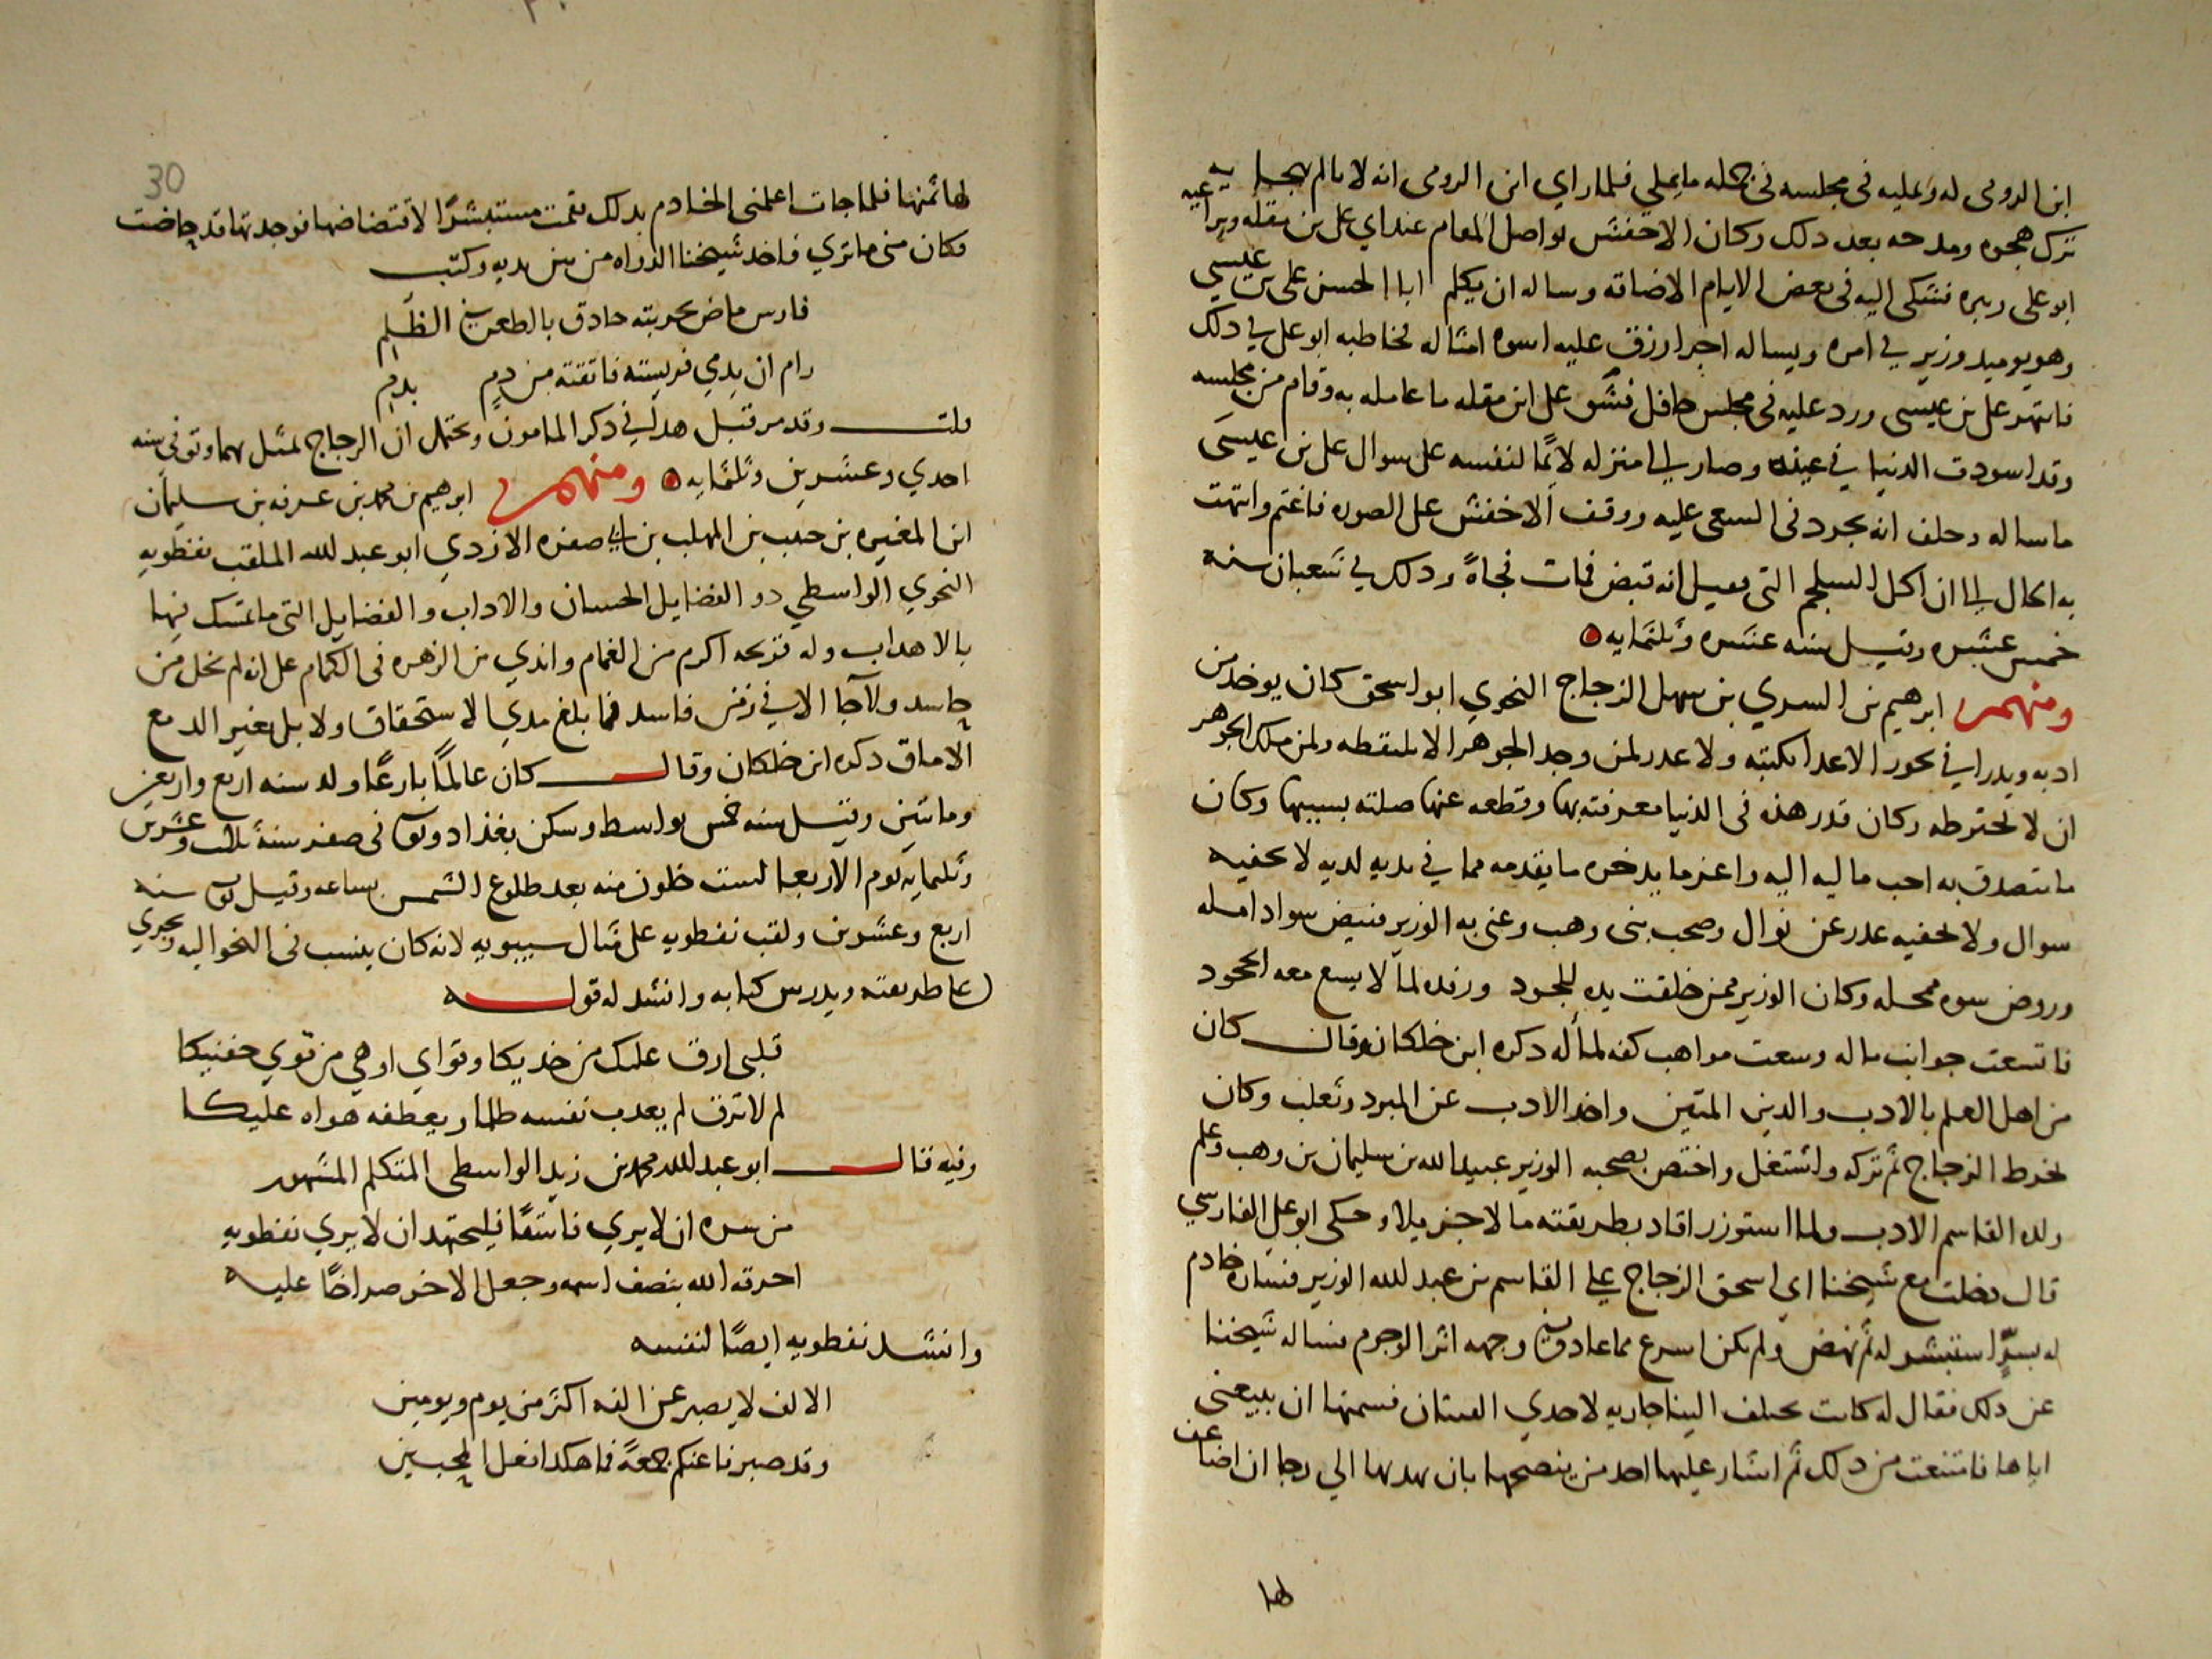 ابن الرومي له وعليه في مجلسه في جمله ما يملي فلما راي ابن الرومي انه لا يالم بهجايه
ترك هجوه ومدحه بعد دلك وكان الاخفش يواصل المقام عند ابي علي بن مقله ويراعيه
ابو علي ويبره فشكي اليه في بعض الايام الاضاقه وساله ان يكلم ابا الحسن علي بن عيسي
وهو يوميد وزير في امره ويساله اجرا رزق عليه اسوه امثاله فخاطبه ابو علي في دلك
فانتهره علي بن عيسي ورد عليه في مجلس حافل فشق علي ابن مقله ما عامله به وقام من مجلسه
وقد اسودت الدنيا في عينه وصار الي منزله لايما لنفسه علي سوال علي بن عيسي
ما ساله وحلف انه يجرد في السعي عليه ووقف الاخفش علي الصوره فاغتم وانتهت
به الحال الي ان اكل السلجم التي فقيل انه قبض فمات فجاة ودلك في شعبان سنه
خمس عشره وقيل سنه ست عشره وثلثمايه
ومنهم ابرهيم بن السري بن سهل الزجاج النحوي ابو اسحق كان يوخد من
ادبه ويدرا في نحور الاعدا بكتبه ولا عدر لمن وجد الجوهر الا يلتقطه ولمن ملك الجوهر
ان لا يخترطه وكان قدر هذه في الدنيا معرفته بها وقطعه عنها صلته بسببها وكان
ما يتصدق به احب ماليه اليه واعز ما يدخره ما يقدمه مما في يديه لديه لا يحفيه
سوال ولا يخفيه عدر عن نوال وصحب بني وهب وعني به الوزير فبيض سواد امله
وروض سوه ممحله وكان الوزير ممن خلقت يده للجود ورفده لما لا يسع معه الجحود
فاتسعت جوانب ماله وسعت مواهب كفه لماله دكره ابن خلكان وقال كان
من اهل العلم بالادب والدين المتين واخد الادب عن المبرد وثعلب وكان
يخرط الزجاج ثم تركه واشتغل واختص بصحبه الوزير عبيد الله بن سليمان بن وهب وعلم
ولده القاسم الادب ولما استوزر افاد بطريقته مالا جزيلا وحكي ابو علي الفارسي
قال دخلت مع شيخنا ابي اسحق الزجاج علي القاسم بن عبد الله الوزير فساره خادم
له بسرّ استبشر له ثم نهض ولم يكن اسرع مما عاد وفي وجهه اثر الوجوم فساله شيخنا
عن دلك فقال له كانت تختلف الينا جاريه لاحدي القينان فسمتها ان تبيعني
اياها فامتنعت من دلك ثم اشار عليها احد من ينصحها بان تهديها الي رجا ان اضاعف
لها
30
لها ثمنها فلما جات اعلمني الخادم بدلك فقمت مستبشرًا لاقتضاضها فوجدتها قد حاضت
فكان مني ما تري فاخد شيخنا الدواه من بين يديه وكتب
فارس ماض بحربته حادق بالطعن في الظلم
رام ان يدمي فريسته فاتقته من دمٍ بدم
قلت وقد مر قبل هدا في دكر المامون ويحتمل ان الزجاج تمثل بهما وتوفي سنه
احدي وعشرين وثلثمايه ومنهم ابرهيم بن محمد بن عرفه بن سليمان
ابن المغيره بن حبيب بن المهلب بن ابي صفره الازدي ابو عبد الله الملقب نفطويه
النحوي الواسطي دو الفضايل الحسان والاداب والفضايل التي ما تمسك فيها
بالاهداب وله قريحه اكرم من الغمام واندي من الزهره في الكمام علي انه لم يخل من
حاسد ولا جا الا في زمن فاسد فما بلغ مدي الاستحقاق ولا بل بغير الدمع
الاماق دكره ابن خلكان وقال كان عالمًا بارعًا ولد سنه اربع واربعين
ومائتين وقيل سنه خمس بواسط وسكن بغداد وتوفي في صفر سنة ثلث وعشرين
وثلثمايه يوم الاربعا لست خلون منه بعد طلوع الشمس بساعه وقيل توفي سنه
اربع وعشرين ولقب نفطويه علي مثال سيبويه لانه كان ينسب في النحو اليه ويجري
علي طريقته ويدرس كتابه وانشد له قوله
قلبي ارق عليك من خديكا وقواي اوهي من قوي جفنيكا
لم لا ترق لم يعدب نفسه ظلما ويعطفه هواه عليكا
وفيه قال ابو عبد الله محمد بن زيد الواسطي المتكلم المشهور
من سره ان لا يري فاسقًا فليجتهد ان لا يري نفطويه
احرقه الله بنصف اسمه وجعل الاخر صراخًا عليه
وانشد نفطويه ايضًا لنفسه
الالف لا يصبر عن الفه اكثر من يوم ويومين
وقد صبرنا عنكم جمعةً فما هكدا فعل المحبين